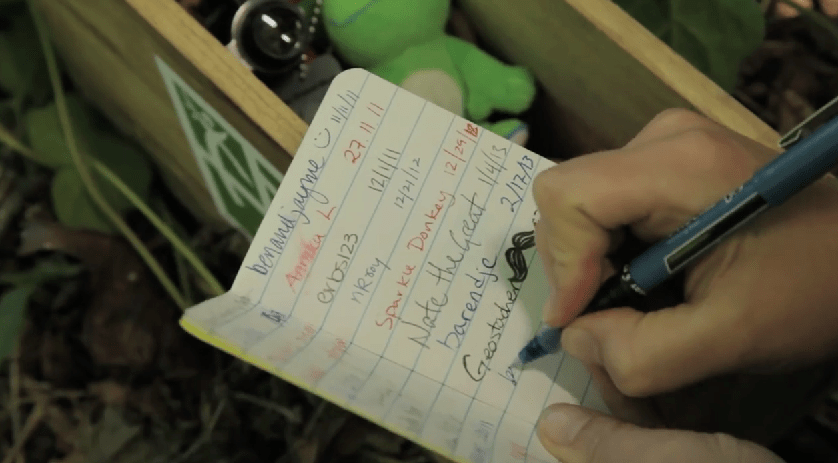 benandjayme ☺ 11/11/11
Annika L 27.11.11
erbs123 12/1/11
nkroy 12/21/12
Sparkle Donkey 12/29/12
Nate the Great 1/4/13
barendje 2/17/13
Geostacher